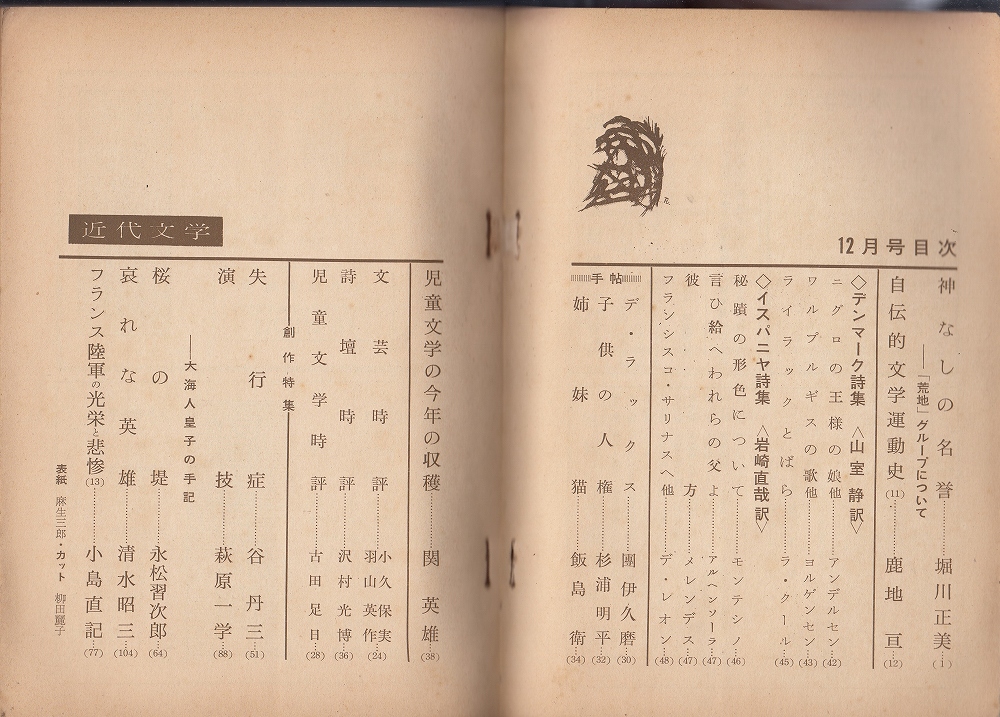 12月号目次
神なしの名誉……堀川正美…(1)
――「荒地」グループについて
自伝的文学運動史(11)……鹿地亘…(12)
◇デンマーク詩集〈山室静訳〉
ニグロの王様の娘他……アンデルセン…(42)
ワルプルギスの歌他……ヨルゲンセン…(43)
ライラックとばら……ラ・クール…(45)
◇イスパニヤ詩集〈岩崎直哉訳〉
秘蹟の形色について……モンテシノ…(46)
言ひ給へわれらの父よ……アルヘンソーラ…(47)
彼方……メレンデス…(47)
フランシスコ・サリナスへ他……デ・レオン…(48)
手帖
デ・ラックス……團伊久磨…(30)
子供の人権……杉浦明平…(32)
姉妹猫……飯島衛…(34)
近代文学
児童文学の今年の収穫……関英雄…(38)
文芸時評……小久保実 羽山英作…(24)
詩壇時評……沢村光博…(36)
児童文学時評……古田足日…(28)
創作特集
失行症……谷丹三…(51)
演技……萩原一学…(88)
――大海人皇子の手記
桜の堤……永松習次郎…(64)
哀れな英雄……清水昭三…(104)
フランス陸軍の光栄と悲惨(13)……小島直記…(77)
表紙 麻生三郎・カット 柳田麗子